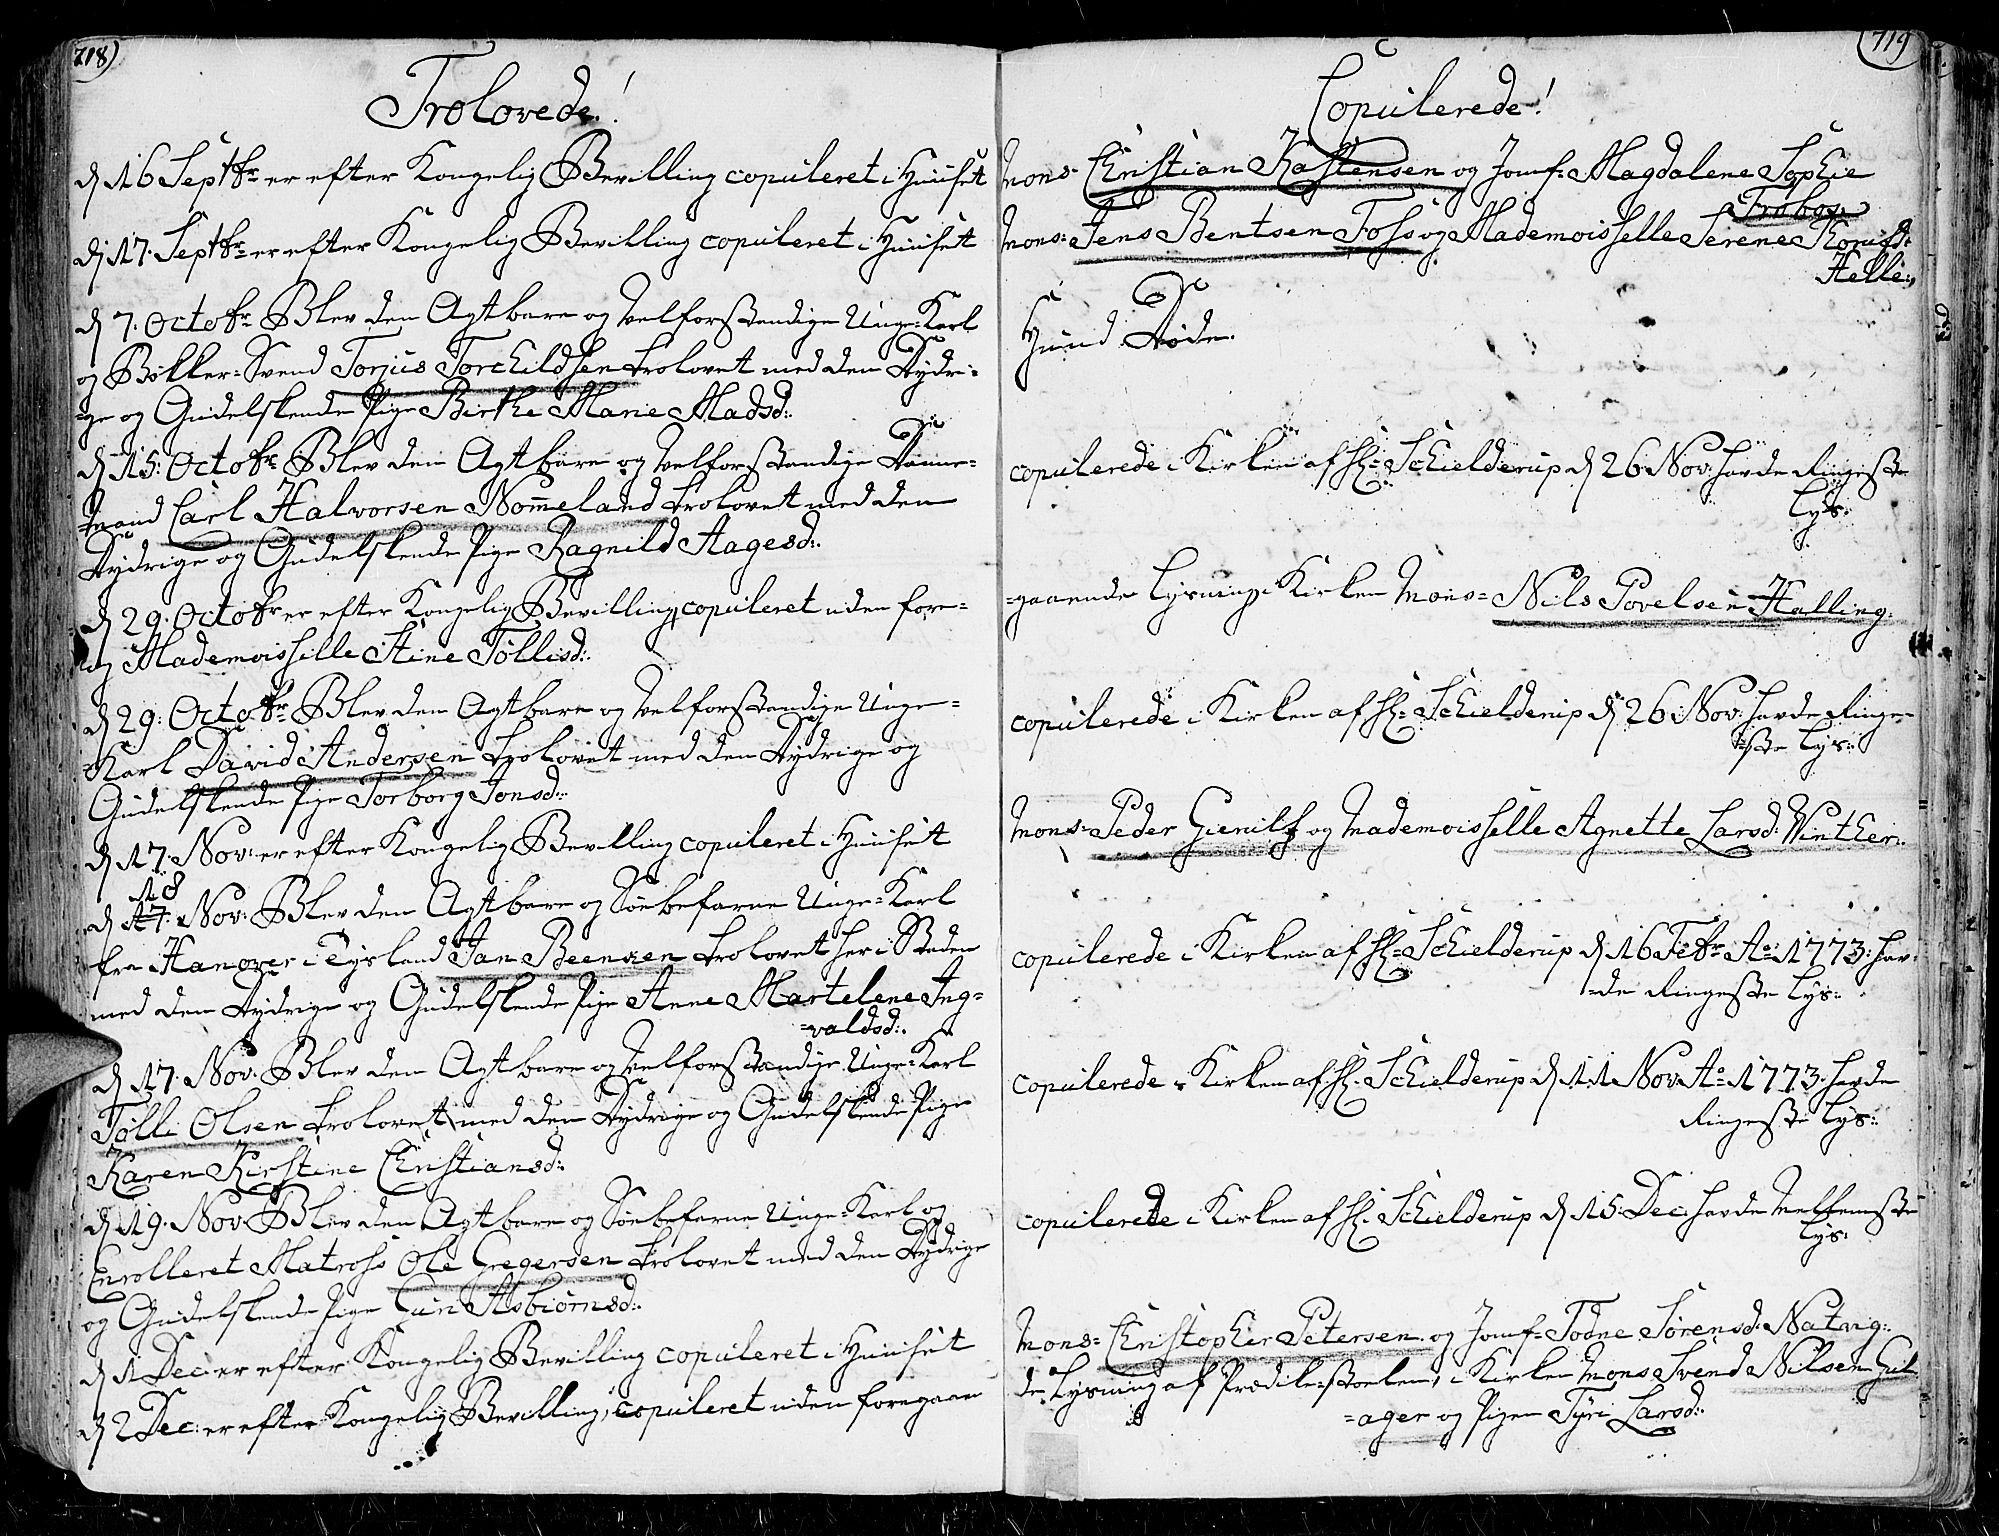 718)
Trolovede!
d 16 Septbr er efter Kongelig Bevilling copuleret i Huuset
d 17. Septbr er efter Kongelig Bevilling copuleret i Huuset
d 7. Octobr Blev den Agtbare og Velforstandige Unge-Karl
og Bøkker-Svend Torjus Torchildsen trolovet med den Dydri-
-ge og Gudelskende Pige Birthe Marie Madsd:
d 15: Octobr Blev den Agtbare og Velforstandige Danne-
-mand Carl Halvorsen Nommeland trolovet med den
Dydrige og Gudelskende Pige Ragnild Aagesd:
d 29. Octobr er efter Kongelig Bevilling, copuleret uden fore-
og Mademoisselle Stine Tøllisd:
d 29: Octobr Blev den Agtbare og Velforstandige Unge-
-Karl David Andersen trolovet med den Dydrige og
Gudelskende Pige Torborg Jonsd:
d 17. Nov: er efter Kongelig Bevilling copuleret i Huuset
18
d 17. Nov: Blev den Agtbare og Søebefarne Unge-Karl
fra Hanover i Tydsland Jan Beenxen trolovet her i Staden
med den Dydrige og Gudelskende Pige Anne Martelene Ing-
-valdsd:
d 17. Nov. Blev den Agtbare og Velforstandige Unge-Karl
Tølli Olsen trolovet med den Dydrige og Gudelskende Pige
Karen Kirstine Christiansd:
d 19. Nov Blev den Agtbare og Søebefarne Unge-Karl og
Enrolleret Matross Ole Gregersen trolovet med den Dydrige
og Gudelskende Pige Guri Asbiørnsd:
d 1 Dec: er efter Kongelig Bevilling copuleret i Huuset
d 2 Dec: er efter Kongelig Bevilling, copuleret uden foregaaen
719
Copulerede!
Mons- Christian Kastensen og Jomf- Magdalene Sophie
Mons: Jens Bentsen Foss og Mademoisselle Serene
Helle:
Hund Døde.
copulerede i Kirken af Hr: Schielderup d 26 Nov: havde Ringeste
Lys:
-gaaende Lysning i Kirken Mons- Nils Povelsen Halling.
copulerede i Kirken af Hr: Schielderup d 26 Nov: havde Ringe-
-ste Lys:
Mons- Peder Gienilf og Mademoisselle Agnette Larsd: Winther:
copulerede i Kirken af Hr: Schielderup d 16 Febr Ao 1773: hav-
-de Ringeste Lys:
copulerede i Kirken af Hr: Schielderup d 11 Nov: Ao 1773: havde
Ringeste Lys:
copulerede i Kirken af Hr: Schielderup d 15. Dec: havde Mellemste
Lys:
Mons- Christopher Petersen og Jomf- Todne Sørensd: Natvig:
de Lysning af Prædike-stoelen, i Kirken Mons Svend Nilsen Gul
-ager og Pigen Tyri Larsd: